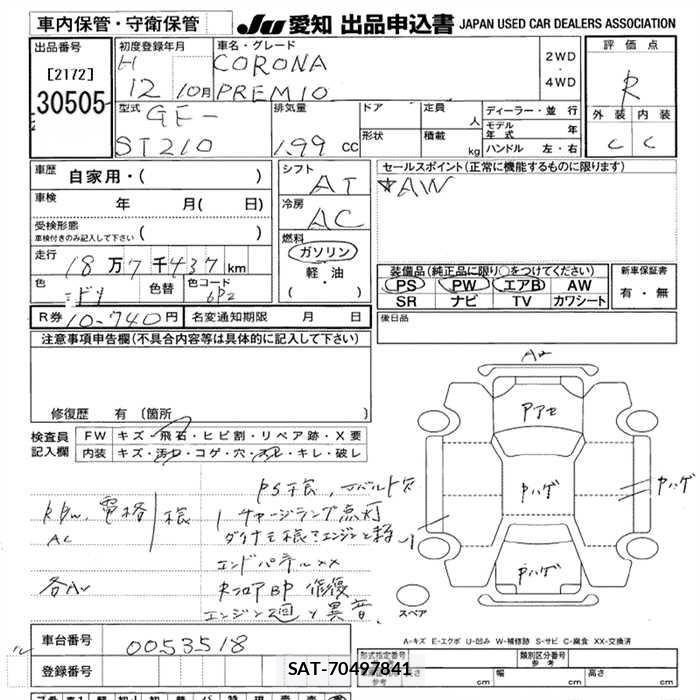 車内保管・守衛保管
JU 愛知 出品申込書 JAPAN USED CAR DEALERS ASSOCIATION
出品番号 [2172] 30505
初度登録年月 H 12 10月
車名・グレード CORONA PREMIO
2WD ・ 4WD
評価点 R
外装 内装
C C
型式 GF- ST210
排気量 1.99 cc
ドア 定員 人
形状 積載 kg
ディーラー・並行
モデル年式 年
ハンドル 左・右
車歴 自家用・( )
車検 年 月( 日)
受検形態 車検付きのみ記入して下さい ( )
走行 18万7千437km
色 色替 色コード 6P2
R券 10-740円 名変通知期限 月 日
シフト AT
冷房 AC
燃料 ガソリン
軽・油
( )
セールスポイント(正常に機能するものに限ります)
☆AW
装備品(純正品に限り○をつけてください)
PS PW エアB AW
SR ナビ TV カワシート
新車保証書
有・無
後日品
注意事項申告欄(不具合内容等は具体的に記入して下さい)
修復歴 有 (箇所
検査員記入欄
FW キズ・飛石・ヒビ割・リペア跡・X要
内装 キズ・汚れ・コゲ・穴・スレ・キレ・破レ
A2
Pハゲ
Pハゲ
Pハゲ
1
PS様
電格
AC
チャージランプ点灯
エンドパネルXX
RフロアBP 修復
エンジン廻り異音
スペア
A-キズ E-エクボ U-凹み W-補修跡 S-サビ C-腐食 XX-交換済
車台番号 0053518
登録番号
形式指定番号 類別区分番号
参考 参考
長さ cm 幅 cm 高さ cm
SAT-70497841